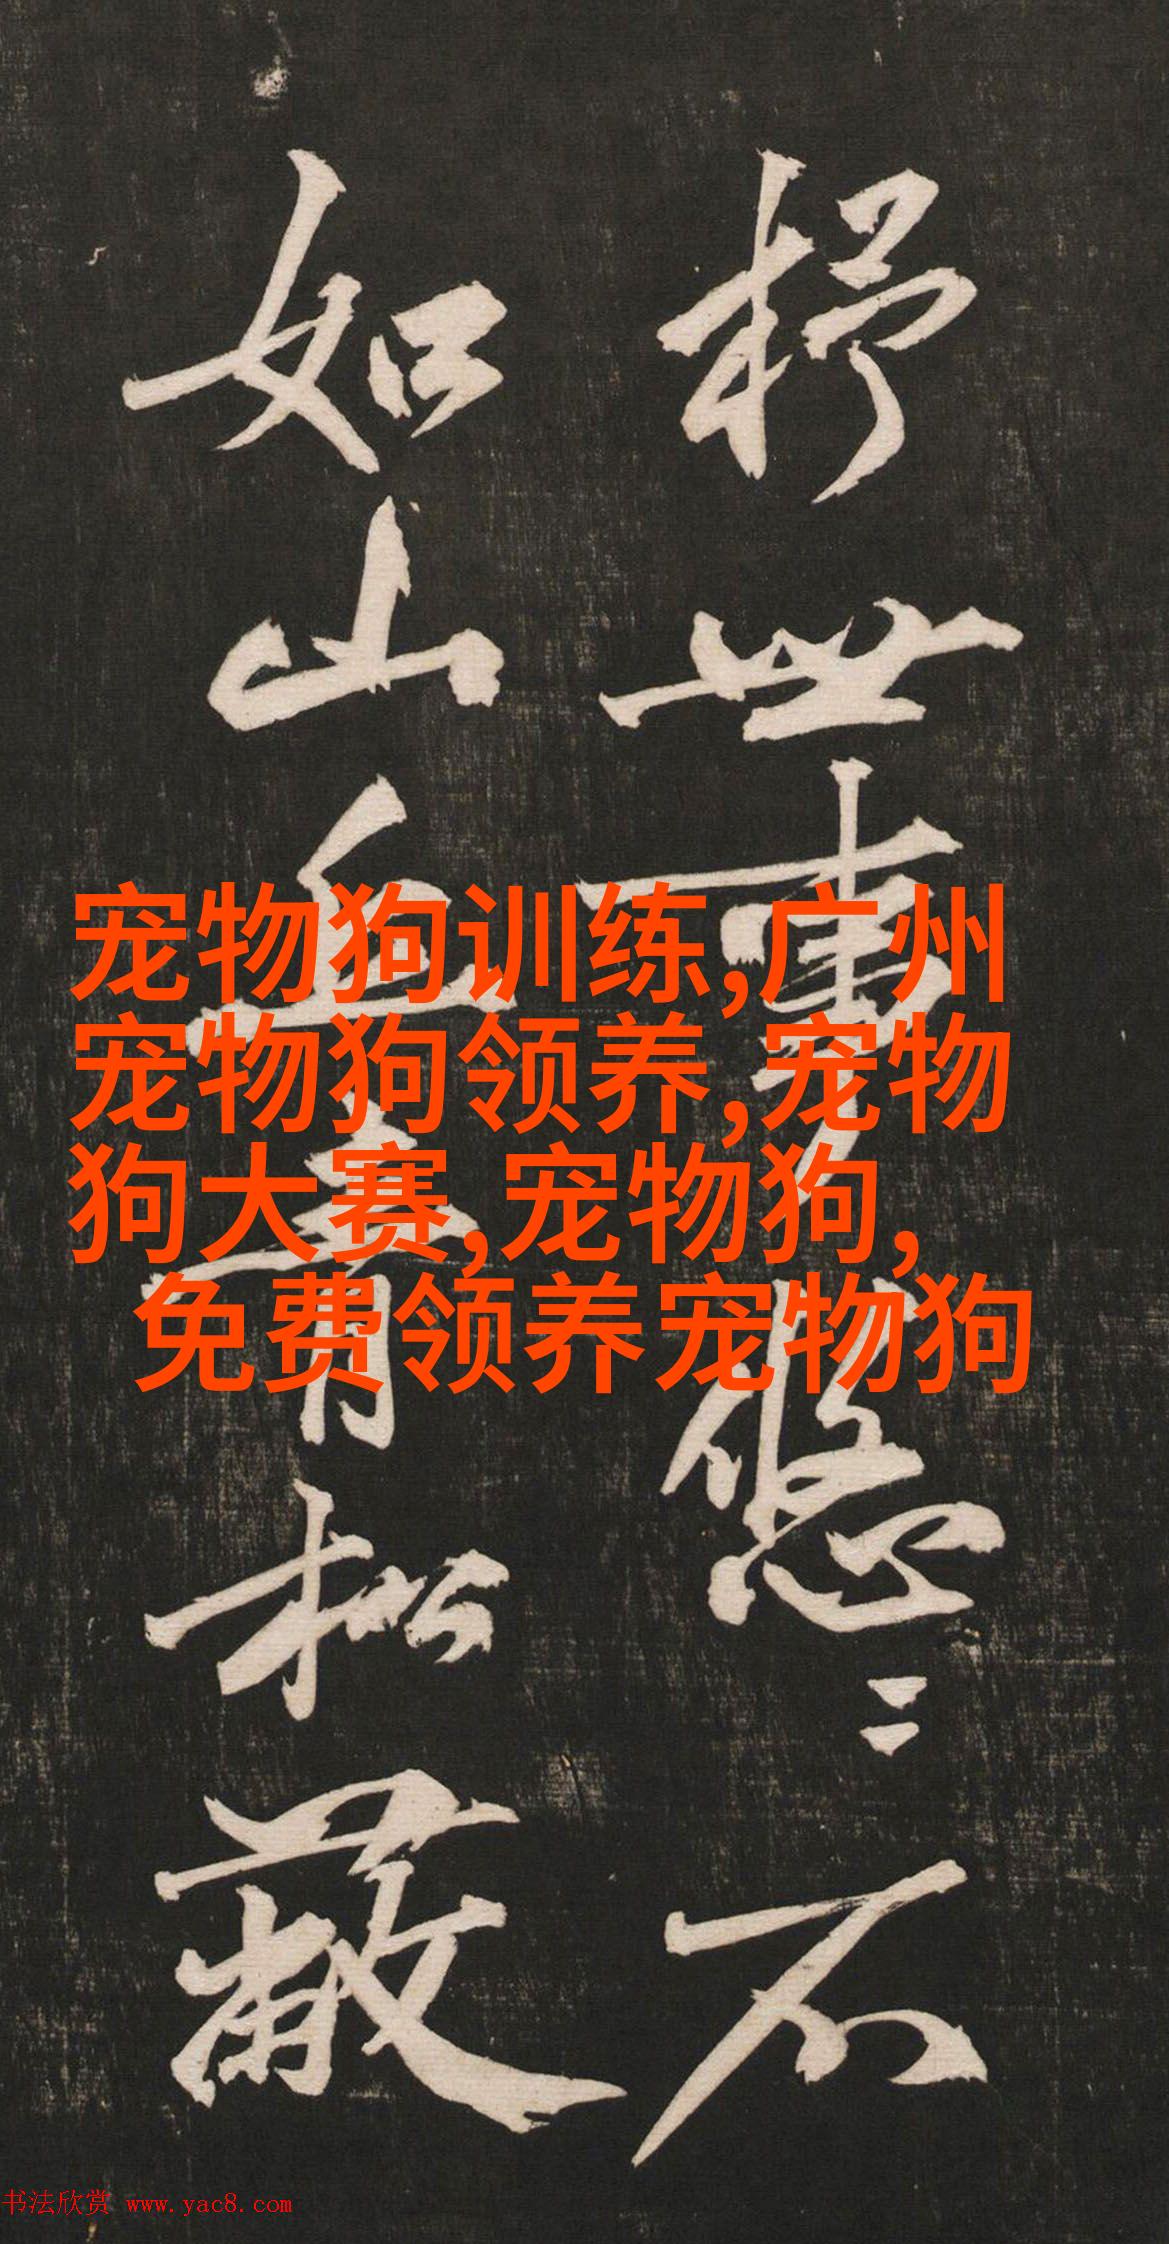 世事悠〻不
如山丘青松蔽
宠物狗训练,广州
宠物狗领养,宠物
狗大赛,宠物狗,
免费领养宠物狗
书法欣赏 www.yac8.com